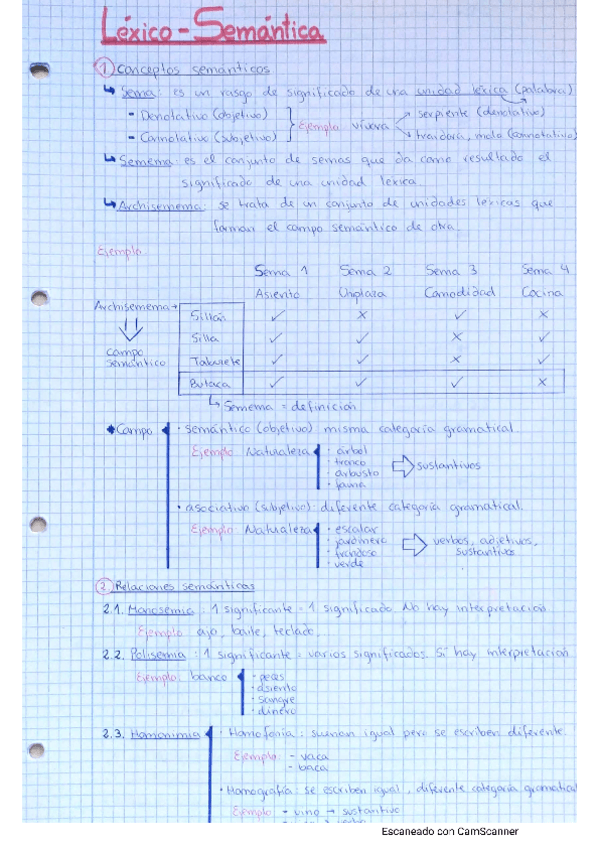 Léxico - Semántica
1 Conceptos semánticos
↳ Sema: es un rasgo de significado de una unidad léxica (palabra)
- Denotativo (objetivo)
- Connotativo (subjetivo)
Ejemplo víbora
serpiente (denotativo)
traidora, mala (connotativo)
↳ Semema: es el conjunto de semas que da como resultado el
significado de una unidad léxica.
↳ Archisemema: se trata de un conjunto de unidades léxicas que
forman el campo semántico de otra.
Ejemplo
Sema 1 Sema 2 Sema 3 Sema 4
Asiento Unplaza Comodidad Cocina
Archisemema →
campo
semántico
Sillón ✓ x ✓ x
Silla ✓ ✓ x ✓
Taburete ✓ ✓ x ✓
Butaca ✓ ✓ ✓ x
↳ Semema = definición
Campo
· semántico (objetivo) misma categoría gramatical.
Ejemplo Naturaleza
· árbol
· tronco
· arbusto
· fauna
⇒ sustantivos
· asociativo (subjetivo): diferente categoría gramatical.
Ejemplo: Naturaleza
· escalar
· jardinero
· frondoso
· verde
⇒ verbos, adjetivos,
sustantivos
2 Relaciones semánticas
2.1. Monosemia: 1 significante - 1 significado. No hay interpretación
Ejemplo ajo, baile, teclado.
2.2. Polisemia: 1 significante: varios significados. Sí hay interpretación
Ejemplo: banco
· peces
· asiento
· sangre
· dinero
2.3. Homonimia
· Homofonía: suenan igual pero se escriben diferente.
Ejemplo - vaca
- baca
· Homografía: se escriben igual, diferente categoría gramatical
Ejemplo - vino → sustantivo
Escaneado con CamScanner